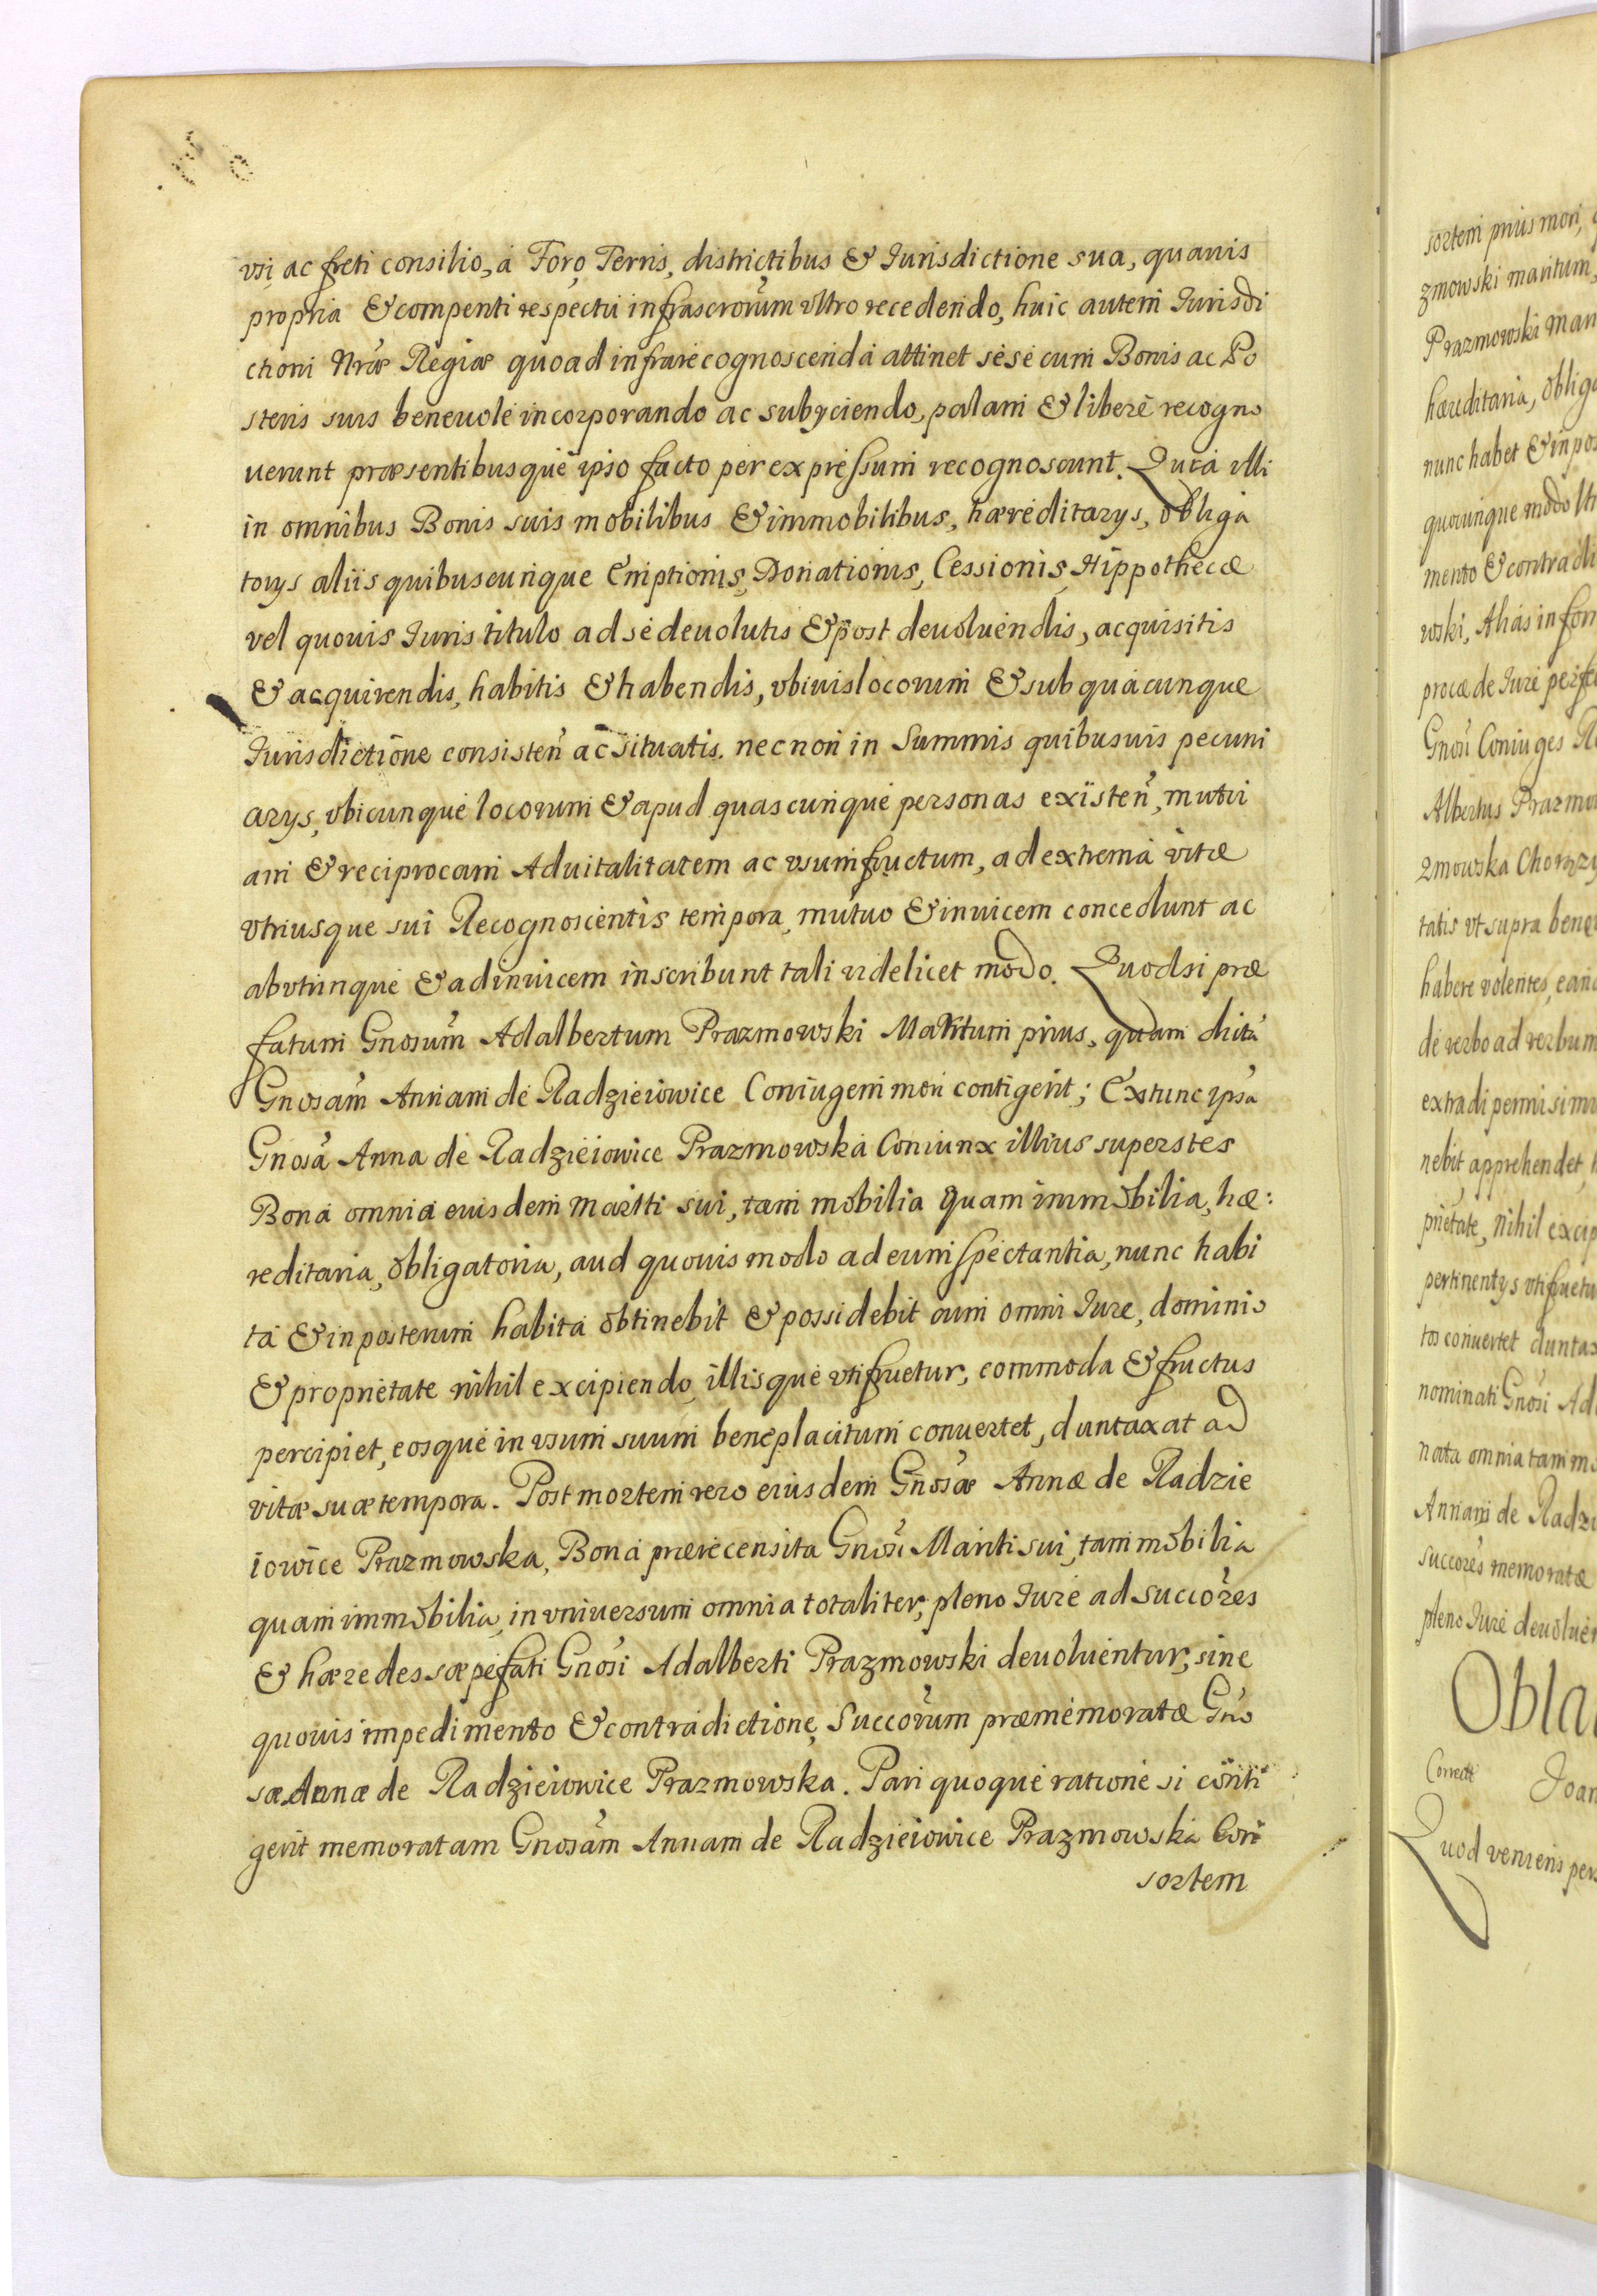 vsi ac freti consilio, á Foro, Terris, districtibus & Jurisdictione sua, quauis
propria & compenti respectu infrascrorum vltro recedendo, huic autem Jurisdi
ctioni Nræ Regiæ quoad infrarecognoscenda attinet sese cum Bonis ac Po
steris suis beneuole incorporando ac subyciendo, palam & libere recogno
uerunt præsentibusque ipso facto per expressum recognoscunt. Quia illi
in omnibus Bonis suis mobilibus & immobilibus, hæreditarys, obliga
torys aliis quibuscunque Emptionis, Donationis, Cessionis, Hippothecæ
vel quouis Juris titulo ad se deuolutis & post deuoluendis, acquisitis
& acquirendis, habitis & habendis, vbiuis locorum & sub quacunque
Jurisdictione consisteñ ac situatis. nec non in Summis quibusuis pecuni
arys, vbicunque locorum & apud quascunque personas existeñ, mutu
am & reciprocam Aduitalitatem ac vsumfructum, ad extrema vitæ
vtriusque sui Recognoscentis tempora, mutuo & inuicem concedunt ac
abvtrinque & adinuicem inscribunt tali videlicet modo. Quodsi præ
fatum Gnosum Adalbertum Prazmowski Maritum prius, quam dictã
Gnosam Annam de Radzieiowice Coniugem mori contigerit; Extunc ipsa
Gnosa Anna de Radzieiowice Prazmowska Coniunx illius superstes
Bona omnia eiusdem Maritti sui, tam mobilia quam immobilia, hæ:
reditaria, obligatoria, aud quouis modo ad eum spectantia, nunc habi
ta & in posterum habita obtinebit & possidebit cum omni Jure, dominio
& proprietate nihil excipiendo, illisque vtifruetur, commoda & fructus
percipiet, eosque in vsum suum beneplacitum conuertet, duntaxat ad
vitæ suæ tempora. Post mortem vero eiusdem Gnosæ Annæ de Radzie
iowice Prazmowska, Bona prærecensita Gnosi Mariti sui, tam mobilia
quam immobilia, in vniuersum omnia totaliter, pleno Jure ad Succores
& hæredes sæpefati Gnosi Adalberti Prazmowski deuoluentur, sine
quouis impedimento & contradictione, Succorum præmemoratæ Gno
sæ Annæ de Radzieiowice Prazmowska. Pari quoque ratione si conti
gerit memoratam Gnosam Annam de Radzieiowice Prazmowska Con
sortem
sortem prius mori,
zmowski maritum,
Prazmowski
hæreditaria,
nunc habet &
quocunque modo
mento &
wski, Alias in
procæ de Jure
Gnosi Coniuges
Albertus
zmowska
tatis vt supra
habere volentes,
de verbo ad verbum
extradi
nebit, apprehendet,
prietate, nihil
pertinentys
tos conuertet
nominati Gnosi
nata omnia tam
Annam de
succores memoratæ
pleno Jure
Correcte
Quod veniens